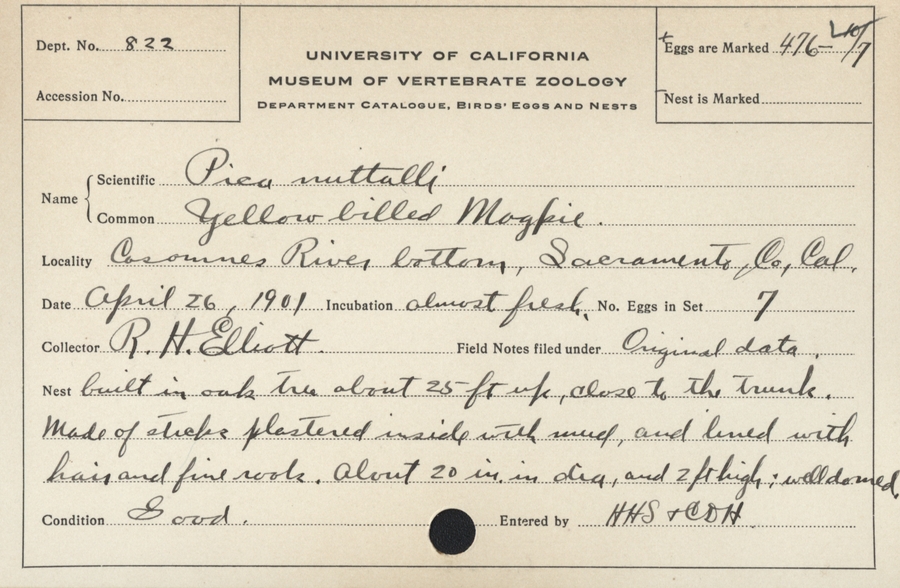 Dept. No. 822
Accession No.
UNIVERSITY OF CALIFORNIA
MUSEUM OF VERTEBRATE ZOOLOGY
DEPARTMENT CATALOGUE, BIRDS' EGGS AND NESTS
Eggs are Marked 476-10/7
Nest is Marked
Name { Scientific Pica nuttalli
Common Yellow billed Magpie.
Locality Cosomnes River bottom, Sacramento, Co, Cal.
Date April 26, 1901 Incubation almost fresh. No. Eggs in Set 7
Collector R. H. Elliott. Field Notes filed under Original data.
Nest built in oak tree about 25 ft up, close to the trunk.
Made of sticks plastered inside with mud, and lined with
hair and fine roots. About 20 in. in dia, and 2 ft high; well domed.
Condition Good. Entered by HHS + CDH